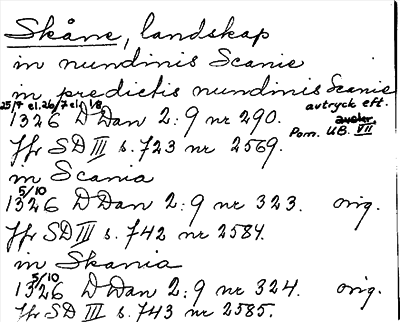 Skåne, landskap
in nundinis Scanie
in predictis nundinis Scanie
25/7 el. 26/7 el. 1/8 avtryck eft.
1326 D Dan 2:9 nr 290. Pom. UB. VII
Jfr SD III s. 723 nr 2569.
in Scania
5/10
1326 D Dan 2:9 nr 323. orig.
Jfr SD III s. 742 nr 2584.
in Skania
5/10
1326 D Dan 2:9 nr 324. orig.
Jfr SD III s. 743 nr 2585.